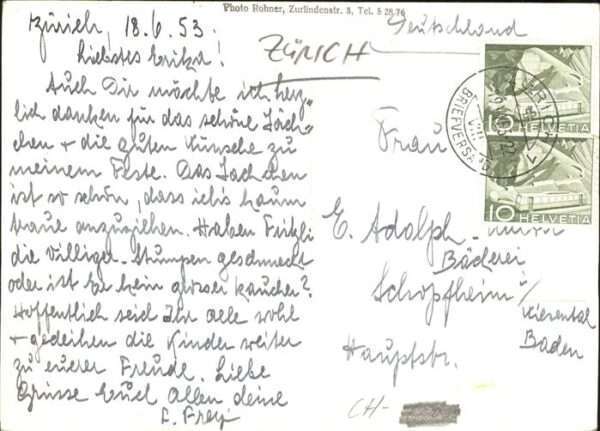 Photo Rohner, Zurlindenstr. 8, Tel. 5 28 76
Zürich, 18.6.53.
Liebstes Erika!
Auch Dir möchte ich herz-
lich danken für das schöne Jäck-
chen + die guten Wünsche zu
meinem Feste. Das Jäckchen
ist so schön, dass ich's kaum
traue anzuziehen. Haben Fritzli
die Villiger-Stumpen geschmeckt
oder ist Er kein grosser Raucher?
Hoffentlich seid Ihr alle wohl
+ gedeihen die Kinder weiter
zu eurer Freude. Liebe
Grüsse Euch allen deine
L. Frey
ZÜRICH
Deutschland
Frau
E. Adolph-
Bäckerei
Schopfheim i/
Wiesental
Baden
Hauptstr.
CH-
10 HELVETIA
10 HELVETIA
ZÜRICH 1
BRIEFVERSAND
VIII